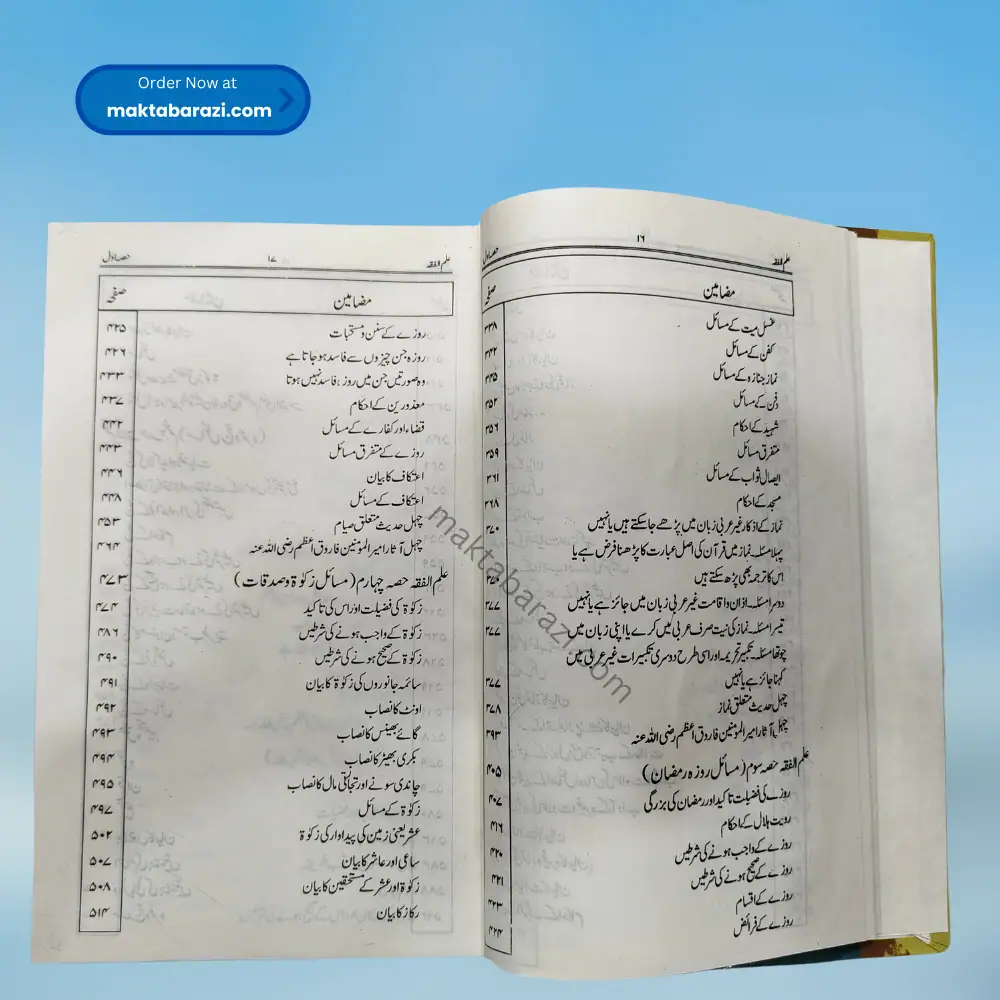 Order Now at
maktabarazi.com
علم الفقہ ۱۶ حصہ اول
مضامین صفحہ
غسل میت کے مسائل ۳۳۸
کفن کے مسائل ۳۴۲
نماز جنازہ کے مسائل ۳۴۵
دفن کے مسائل ۳۵۲
شہید کے احکام ۳۵۶
متفرق مسائل ۳۵۹
ایصال ثواب کے مسائل ۳۶۱
مسجد کے احکام ۳۶۸
نماز کے اذکار غیر عربی زبان میں پڑھے جاسکتے ہیں یا نہیں ۳۷۰
پہلا مسئلہ۔ نماز میں قرآن کی اصل عبارت کا پڑھنا فرض ہے یا
اس کا ترجمہ بھی پڑھ سکتے ہیں ۳۷۰
دوسرا مسئلہ۔ اذان واقامت غیر عربی زبان میں جائز ہے یا نہیں ۳۷۷
تیسرا مسئلہ۔ نماز کی نیت صرف عربی میں کرے یا اپنی زبان میں ۳۷۷
چوتھا مسئلہ۔ تکبیر تحریمہ اور اسی طرح دوسری تکبیرات غیر عربی میں
کہنا جائز ہے یا نہیں ۳۷۷
چہل حدیث متعلق نماز ۳۷۸
چہل آثار امیر المومنین فاروق اعظم رضی اللہ عنہ ۳۹۳
علم الفقہ حصہ سوم (مسائل روزہ رمضان) ۴۰۵
روزے کی فضیلت تاکید اور رمضان کی بزرگی ۴۰۷
رویت ہلال کے احکام ۴۱۶
روزے کے واجب ہونے کی شرطیں ۴۲۰
روزے کے صحیح ہونے کی شرطیں ۴۲۱
روزے کے اقسام ۴۲۳
روزے کے فرائض ۴۲۴
علم الفقہ ۱۷ حصہ اول
مضامین صفحہ
روزے کے سنن و مستحبات ۴۲۵
روزہ جن چیزوں سے فاسد ہوجاتا ہے ۴۲۶
وہ صورتیں جن میں روزہ فاسد نہیں ہوتا ۴۳۳
معذورین کے احکام ۴۳۷
قضاء اور کفارے کے مسائل ۴۴۲
روزے کے متفرق مسائل ۴۴۳
اعتکاف کا بیان ۴۴۶
اعتکاف کے مسائل ۴۴۸
چہل حدیث متعلق صیام ۴۵۳
چہل آثار امیر المومنین فاروق اعظم رضی اللہ عنہ ۴۶۴
علم الفقہ حصہ چہارم (مسائل زکوٰۃ و صدقات) ۴۷۳
زکوٰۃ کی فضیلت اور اس کی تاکید ۴۷۴
زکوٰۃ کے واجب ہونے کی شرطیں ۴۸۶
زکوٰۃ کے صحیح ہونے کی شرطیں ۴۹۰
سائمہ جانوروں کی زکوٰۃ کا بیان ۴۹۱
اونٹ کا نصاب ۴۹۲
گائے بھینس کا نصاب ۴۹۳
بکری بھیڑ کا نصاب ۴۹۴
چاندی سونے اور تجارتی مال کا نصاب ۴۹۵
زکوٰۃ کے مسائل ۴۹۷
عشر یعنی زمین کی پیداوار کی زکوٰۃ ۵۰۲
ساعی اور عاشر کا بیان ۵۰۷
زکوٰۃ اور عشر کے مستحقین کا بیان ۵۰۸
رکاز کا بیان ۵۱۴
maktabarazi.com